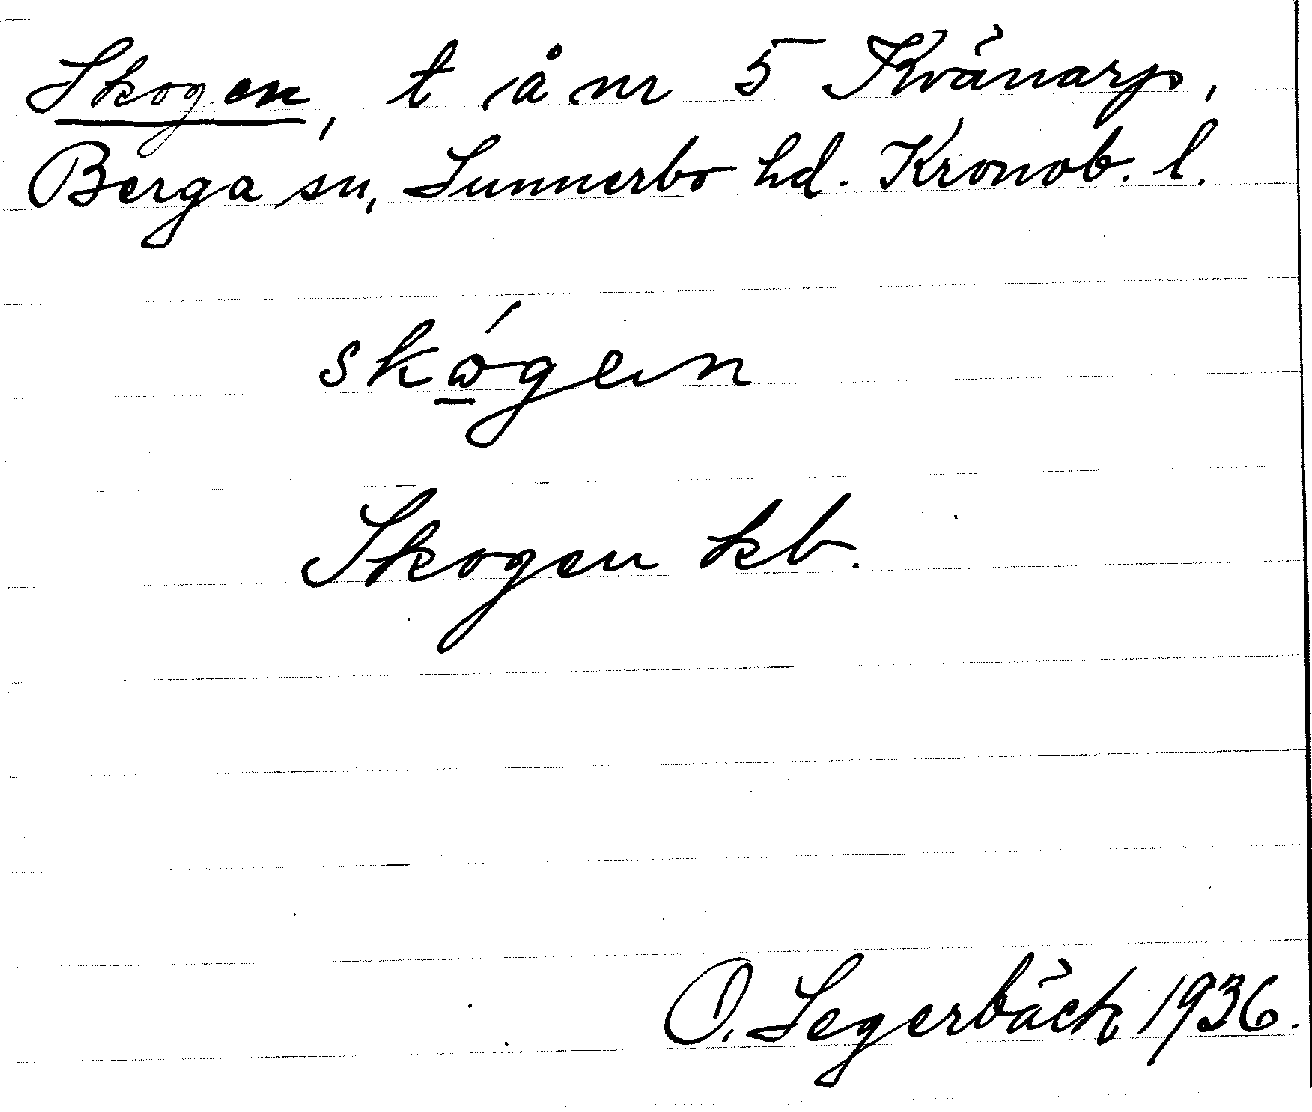 Skogen, t å nr 5 Kvänarp,
Berga sn, Sunnerbo hd. Kronob. l.
skógen
Skogen kb.
O. Segerbäck 1936.